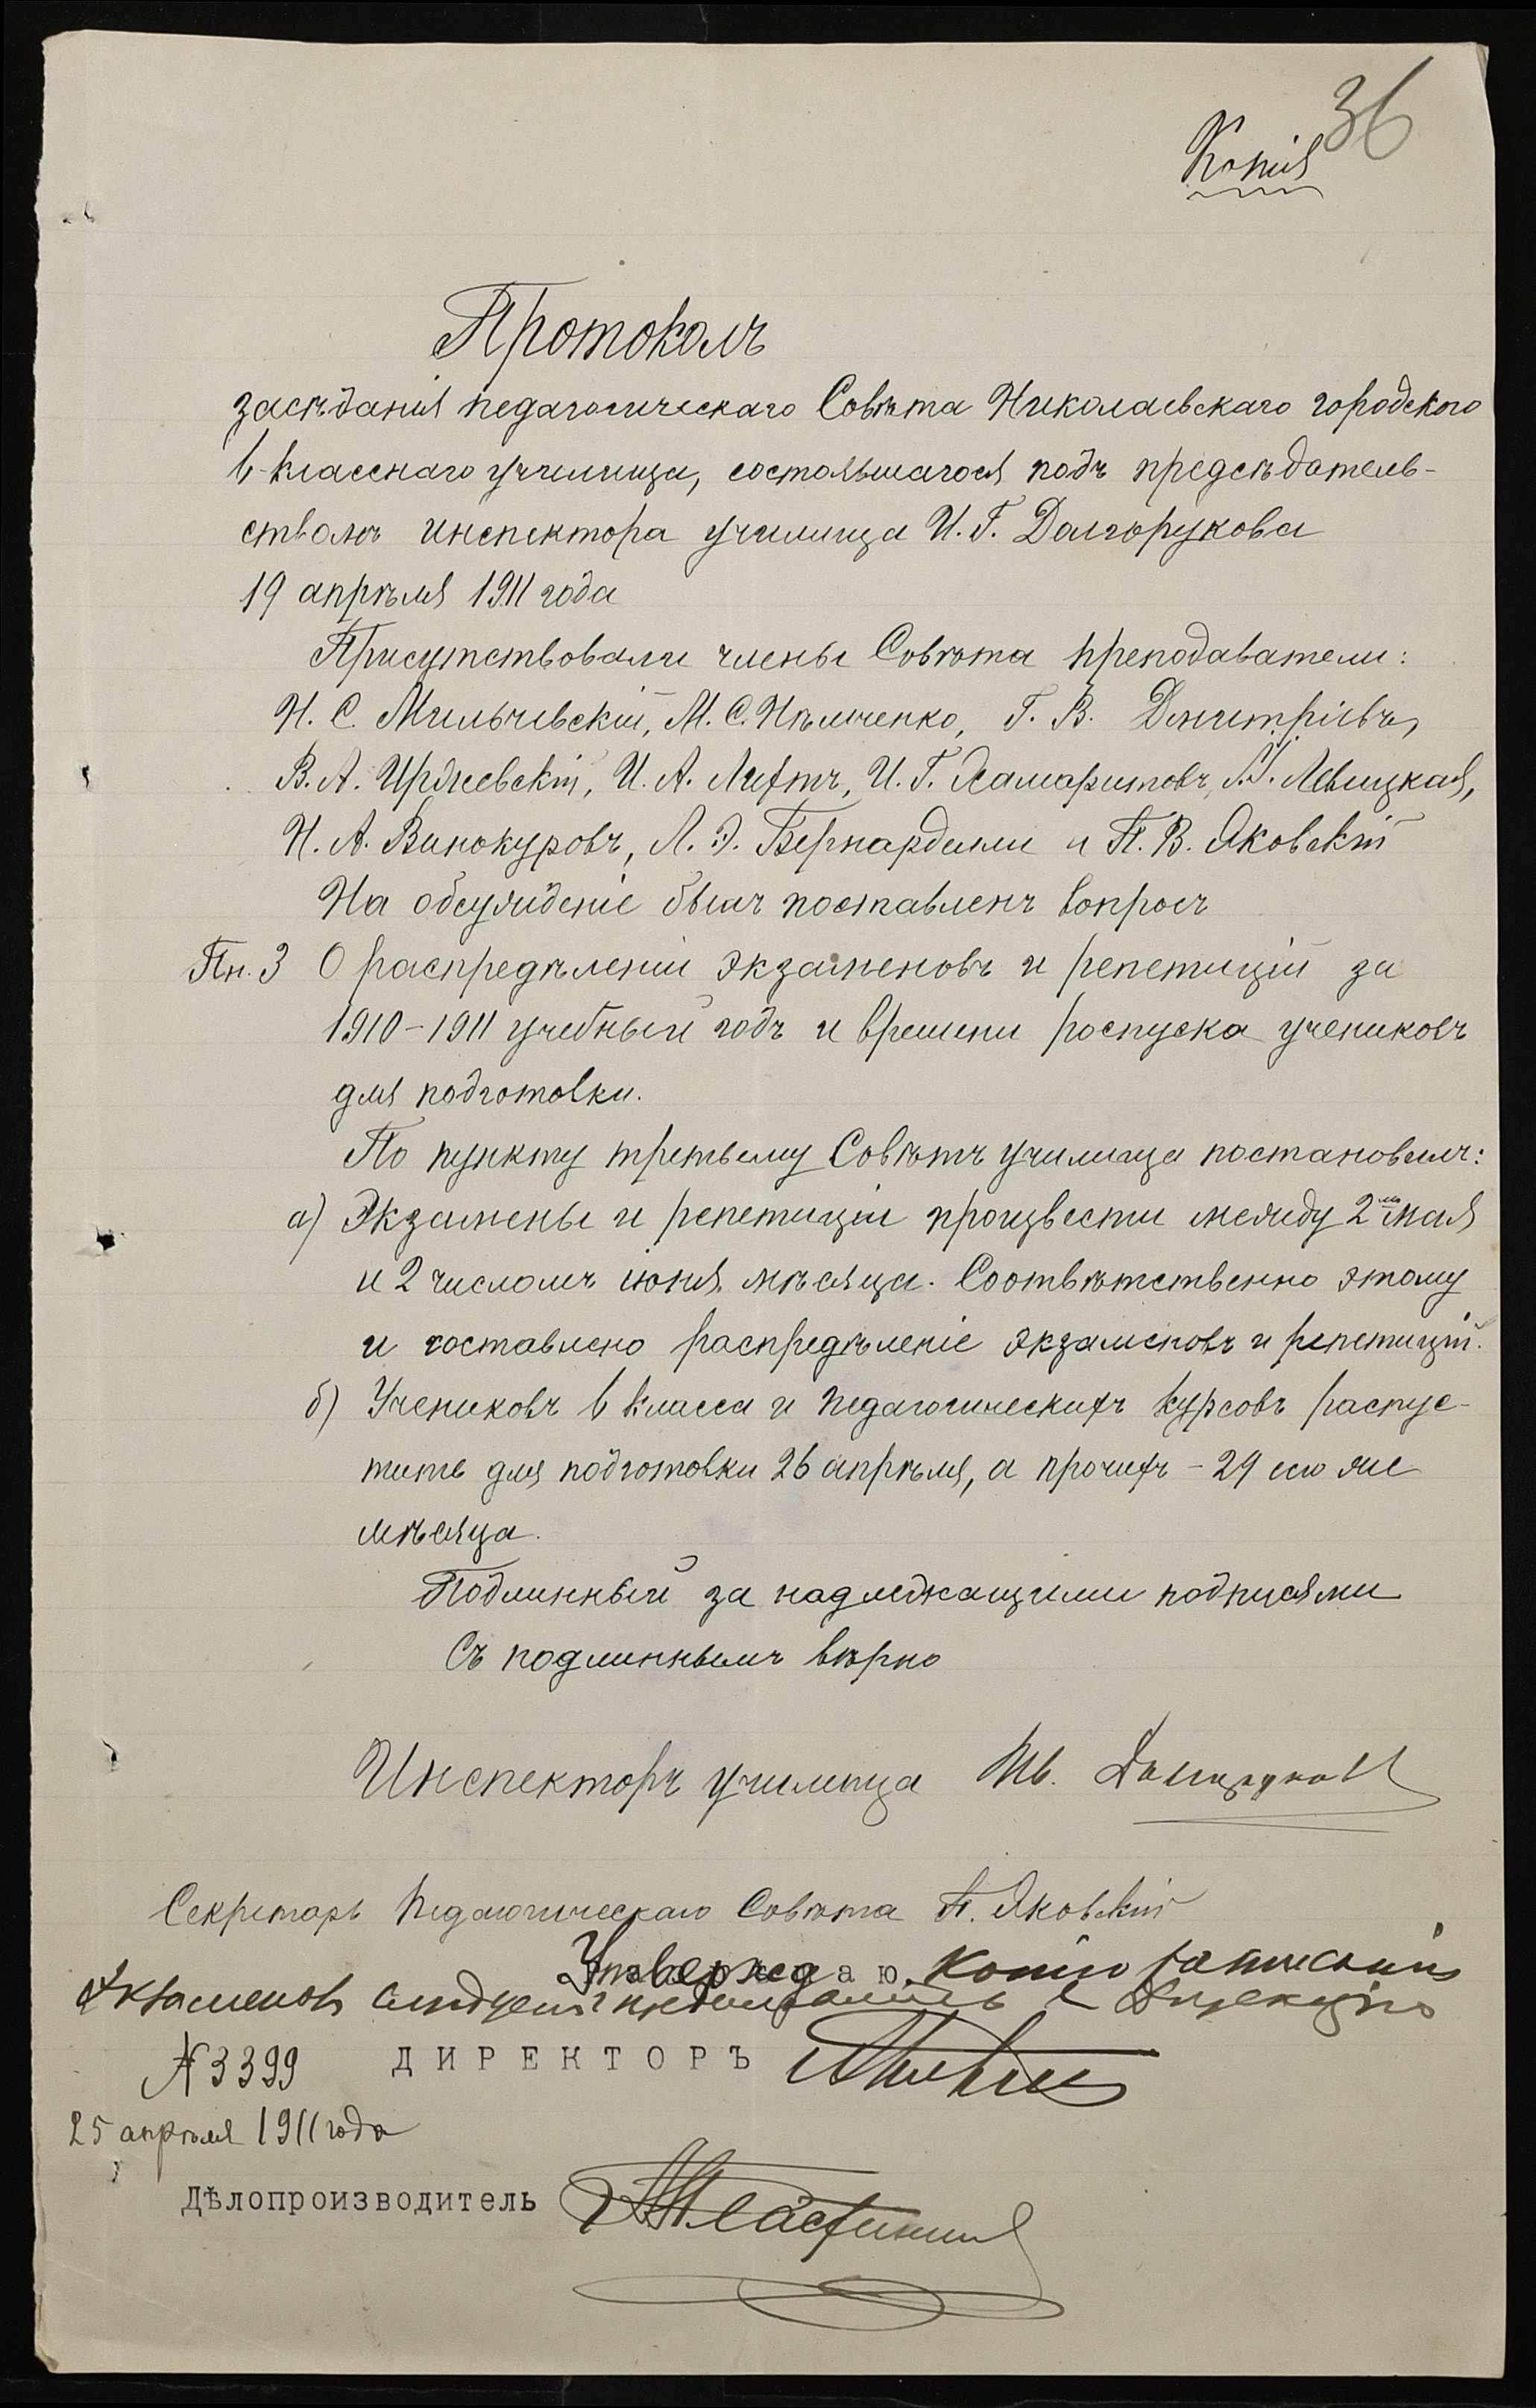 36
Копія
Протоколъ
засѣданія педагогическаго Совѣта Николаевскаго городского
6-класснаго училища, состоявшагося подъ предсѣдатель-
ствомъ инспектора училища И. Г. Долгорукова
19 апрѣля 1911 года
Присутствовали члены Совѣта преподаватели:
Н. С. Мильчевскій, М. С. Ильченко, Г. В. Дмитріевъ,
В. А. Ирджевскій, И. А. Лифтъ, И. Г. Левицкая,
Н. А. Винокуровъ, Л. Э. Бернардини и П. В. Яковскій
На обсужденіе былъ поставленъ вопросъ
Пн. 3 О распредѣленіи экзаменовъ и репетицій за
1910-1911 учебный годъ и времени роспуска учениковъ
для подготовки.
По пункту третьему Совѣтъ училища постановилъ:
а) Экзамены и репетиціи произвести между 2 мая
и 2 числомъ іюня мѣсяца. Соотвѣтственно этому
и составлено распредѣленіе экзаменовъ и репетицій.
б) Учениковъ 6 класса и педагогическихъ курсовъ распус-
тить для подготовки 26 апрѣля, а прочихъ - 29 сего же
мѣсяца.
Подлинный за надлежащими подписями
Съ подлиннымъ вѣрно
Инспекторъ училища Ив. Долгоруковъ
Секретарь Педагогическаго Совѣта П. Яковскій
Утверждаю. Копію росписанія
экзаменовъ слѣдуетъ въ Дирекцію
№ 3399 ДИРЕКТОРЪ
25 апрѣля 1911 года
Дѣлопроизводитель